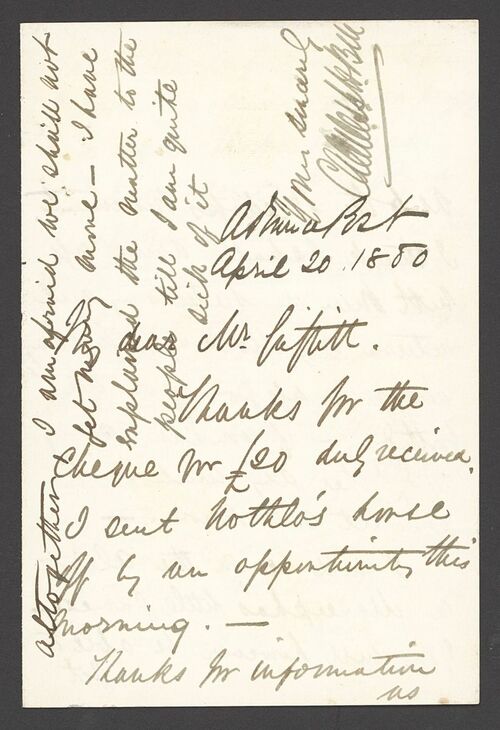 April 20. 1880
My dear Mr.
Thanks for the
cheque for £20 duly received.
I sent horse
off by an opportunity this
morning. —
Thanks for information
as
altogether I am afraid we shall not
get any more — I have
explained the matter to the
people till I am quite
sick of it
Yours sincerely